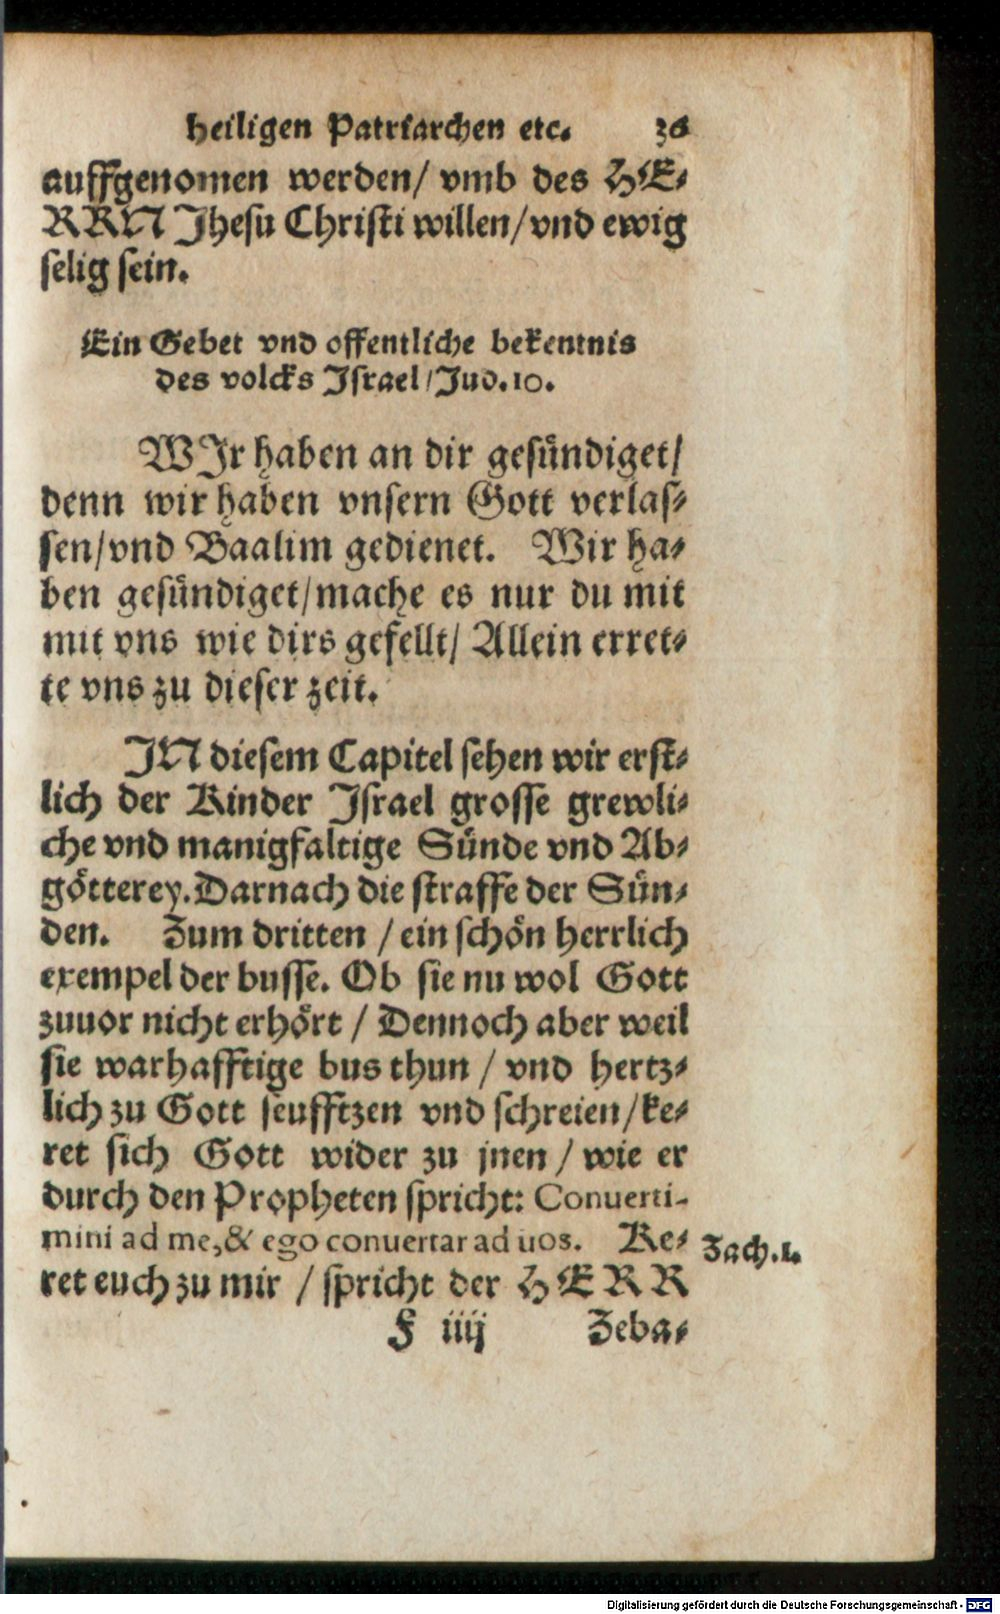 heiligen Patriarchen etc.
auffgenomen werden/ vmb des HE⸗
RRN Jhesu Christi willen/vnd ewig
selig sein.
Ein Gebet vnd offentliche bekentnis
des volcks Israel/Jud.10.
WJr haben an dir gesündiget/
denn wir haben vnsern Gott verlas⸗
sen/vnd Baalim gedienet. Wir ha⸗
ben gesündiget/mache es nur du mit
mit vns wie dirs gefellt/ Allein erret⸗
te vns zu dieser zeit.
JN diesem Capitel sehen wir erst⸗
lich der Kinder Israel grosse grewli⸗
che vnd manigfaltige Sünde vnd Ab⸗
götterey. Darnach die straffe der Sün⸗
den. Zum dritten / ein schön herrlich
exempel der busse. Ob sie nu wol Gott
zuuor nicht erhört / Dennoch aber weil
sie warhafftige bus thun / vnd hertz⸗
lich zu Gott seufftzen vnd schreien/ke⸗
ret sich Gott wider zu jnen / wie er
durch den Propheten spricht: Conuerti-
mini ad me, & ego conuertar ad uos. Ke⸗
Zach.1.
ret euch zu mir / spricht der HERR
F iiij Zeba⸗
Digitalisierung gefördert durch die Deutsche Forschungsgemeinschaft - DFG